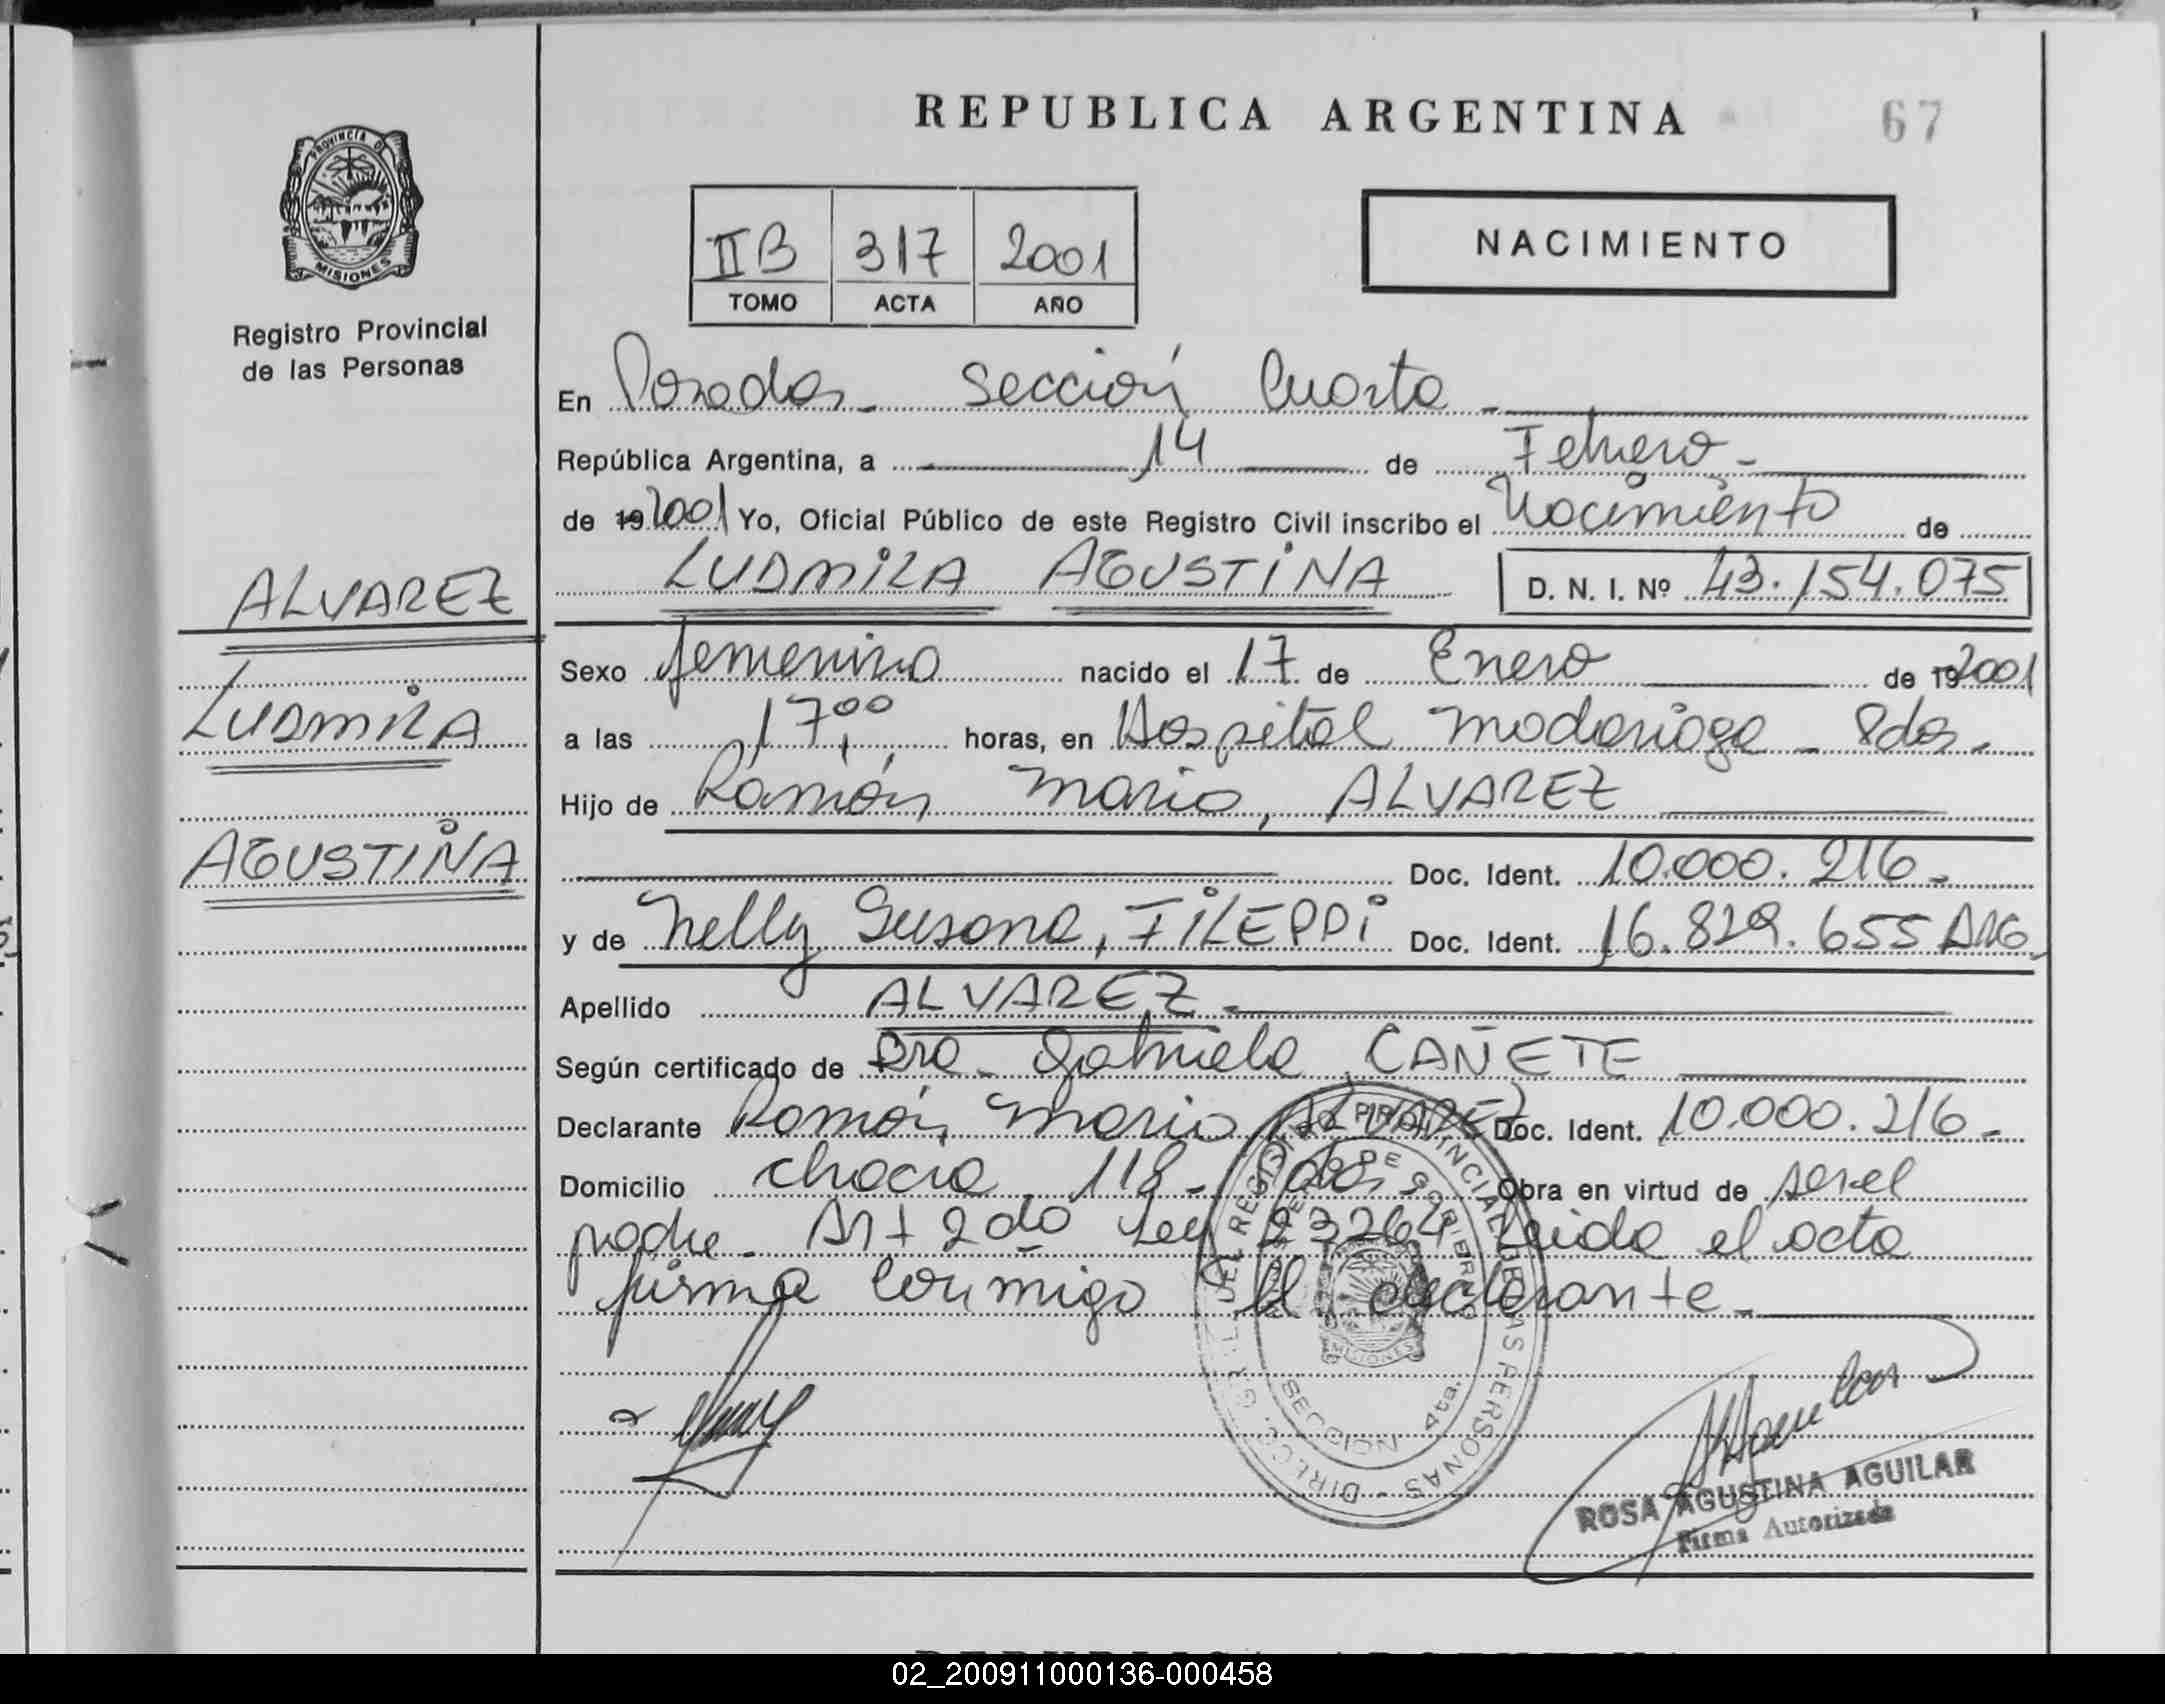 REPUBLICA ARGENTINA 67
PROVINCIA D MISIONES
Registro Provincial
de las Personas
IIB 317 2001
TOMO ACTA AÑO
NACIMIENTO
En Posadas - Sección Cuarta -
República Argentina, a 14 de Febrero -
de 19 2001 Yo, Oficial Público de este Registro Civil inscribo el Nacimiento de
LUDMILA AGUSTINA D. N. I. Nº 43.154.075
ALVAREZ
Ludmila
AGUSTINA
Sexo femenino nacido el 17 de Enero de 19 2001
a las 17,00 horas, en Hospital Madariaga - Pdas -
Hijo de Ramón Mario, ALVAREZ
Doc. Ident. 10.000.216 -
y de Nelly Susana, FILEPPI Doc. Ident. 16.829.655 ARG
Apellido ALVAREZ -
Según certificado de Dra. Gabriela, CAÑETE
Declarante Ramón Mario ALVAREZ Doc. Ident. 10.000.216 -
Domicilio 118 - Pdas Obra en virtud de ser el
padre - Art 2do Ley 23264 Leida el acta
firma conmigo el declarante -
DEL REGISTRO PROVINCIAL DE LAS PERSONAS - DIRECC. GRAL.
DE GOBIERNO
MISIONES
SECCION 4ta.
ROSA AGUSTINA AGUILAR
Firma Autorizada
02_200911000136-000458